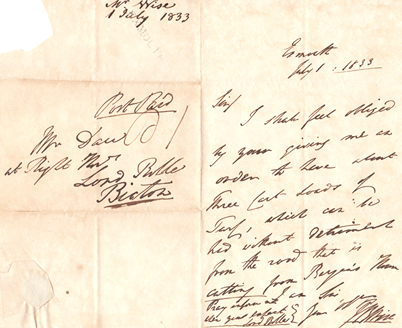 Mr Wise
1 July 1833
Post Paid
Mr Daw
at Right Honle
Lord Rolle
Bicton
Exmouth
July 1. 1833
Sir/
I shall feel obliged
by your giving me an
order to have about
Three Cart loads of
Turf, which can be
had without detriment
from the road that is
cutting from
Pray inform me
Lord Rolle
I am Sir
Your
Wise